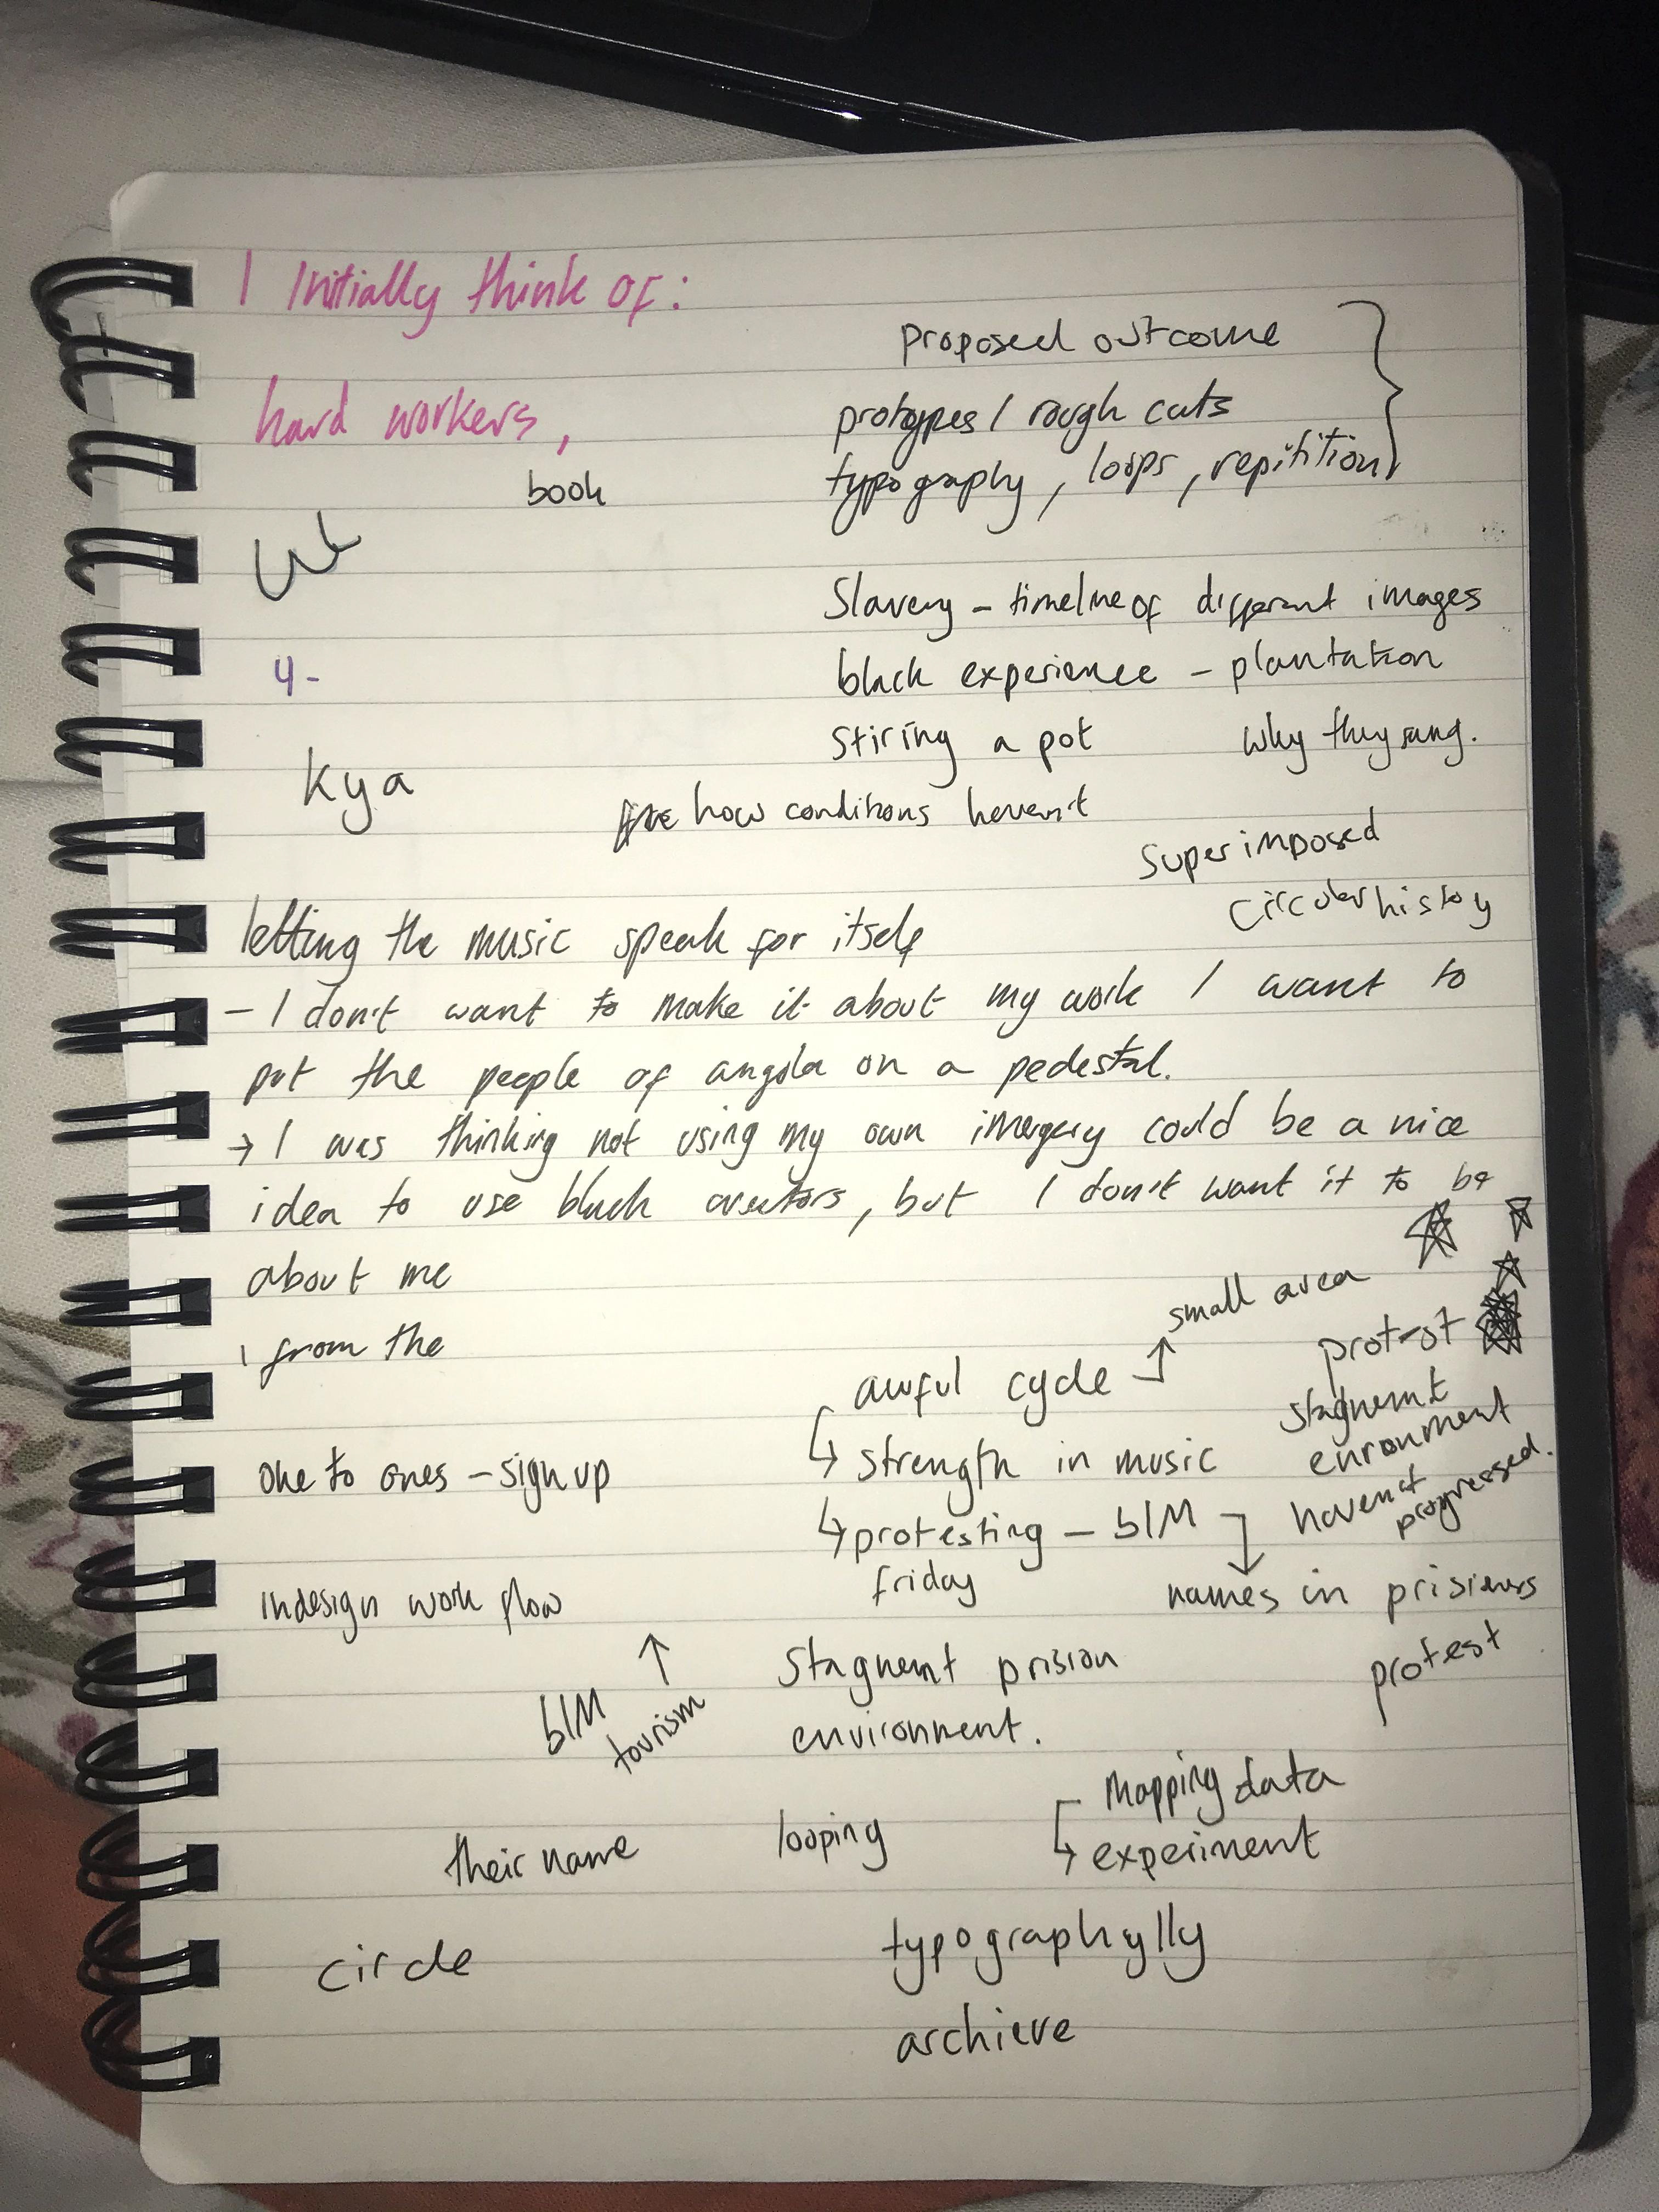 I Initially think of:
proposed outcome
hard workers,
protoypes / rough cuts
book
typography, loops, repitition
Slavery - timeline of different images
4-
black experience - plantation
Stiring a pot
why they sang.
Kya
how conditions heven't
Superimposed
Circular history
letting the music speak for itself
- I don't want to make it about my work I want to
put the people of angola on a pedestal.
→ I was thinking not using my own imergery could be a nice
idea to use black creators, but I don't want it to be
about me
small area
I from the
protest
awful cycle
stagnemt
enronment
haven't
progressed.
one to ones - sign up
strength in music
protesting - blM
friday
names in prisieners
protest
indesign work flow
Stagnemt prision
environment.
blM
tourism
mapping data
experiment
their name
looping
typographylly
circle
archieve